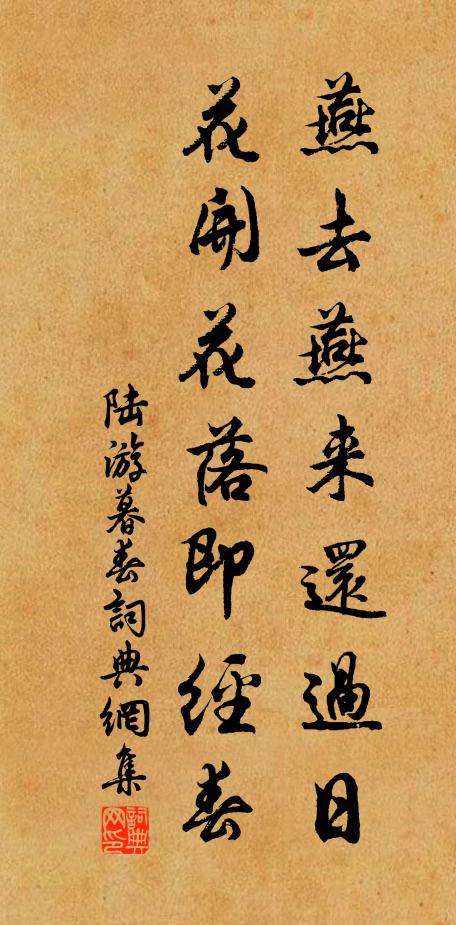 燕去燕来還過日
花開花落即經春
陆游暮春詞典網集
詞典网印